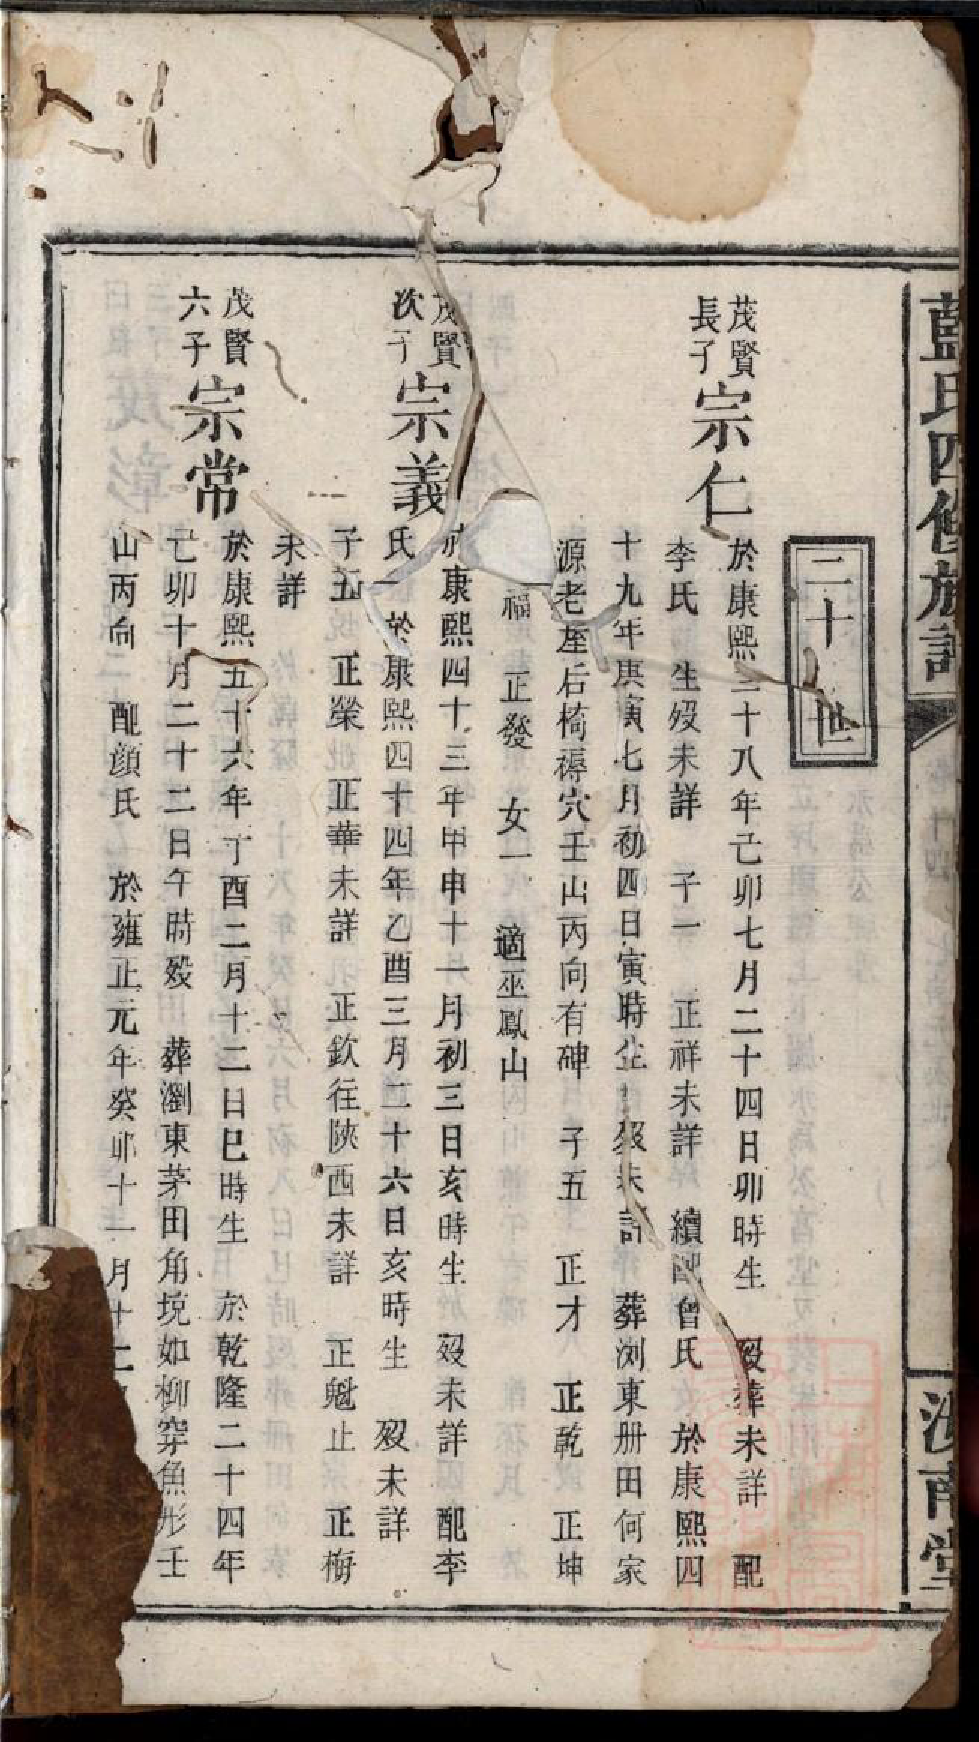 藍氏四修族譜
汝南堂
二十世
茂賢長子宗仁
於康熙三十八年己卯七月二十四日卯時生 歿葬未詳 配
李氏 生歿未詳 子一 正祥未詳 續配曾氏 於康熙四
十九年庚寅七月初四日寅時生 歿未詳 葬浏東册田何家
源老屋后椅褥穴壬山丙向有碑 子五 正才 正乾 正坤
福 正發 女一 適巫鳳山
茂賢次子宗義
康熙四十三年甲申十一月初三日亥時生 歿未詳 配李
氏 於康熙四十四年乙酉三月二十六日亥時生 歿未詳
子五 正榮 正華未詳 正欽往陝西未詳 正魁止 正梅
未詳
茂賢六子宗常
於康熙五十六年丁酉二月十二日巳時生 於乾隆二十四年
己卯十月二十二日午時歿 葬瀏東茅田角境如柳穿魚形壬
山丙向 配顔氏 於雍正元年癸卯十一月十二